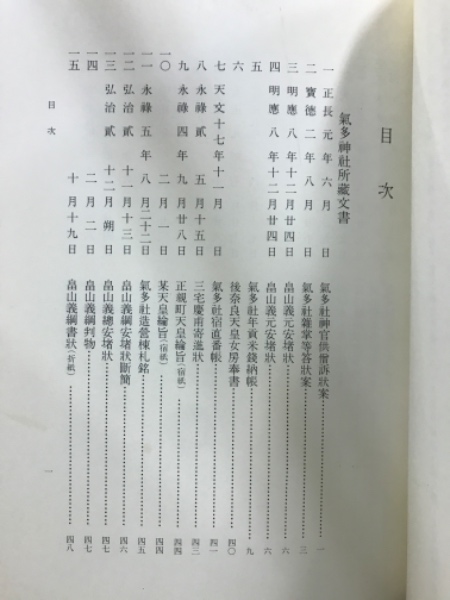 目次
氣多神社所藏文書
一 正長元年六月 日 氣多社神官供僧訴狀案 一
二 寶德二年八月 日 氣多社雜掌等答狀案 三
三 明應八年十二月廿四日 畠山義元安堵狀 六
四 明應八年十二月廿四日 畠山義元安堵狀 六
五 氣多社年貢米錢納帳 九
六 後奈良天皇女房奉書 四〇
七 天文十七年十一月 日 氣多社宿直番帳 四一
八 永祿貳 五月十五日 三宅慶甫寄進狀 四三
九 永祿四年九月廿八日 正親町天皇綸旨(宿紙) 四四
一〇 二月一日 某天皇綸旨(宿紙) 四四
一一 永祿五年八月二十二日 氣多社造營棟札銘 四五
一二 弘治貳 十一月十三日 畠山義綱安堵狀斷簡 四六
一三 弘治貳 十二月朔日 畠山義總安堵狀 四六
一四 二月二日 畠山義綱判物 四七
一五 十月十九日 畠山義綱書狀(折紙) 四八
目次
一